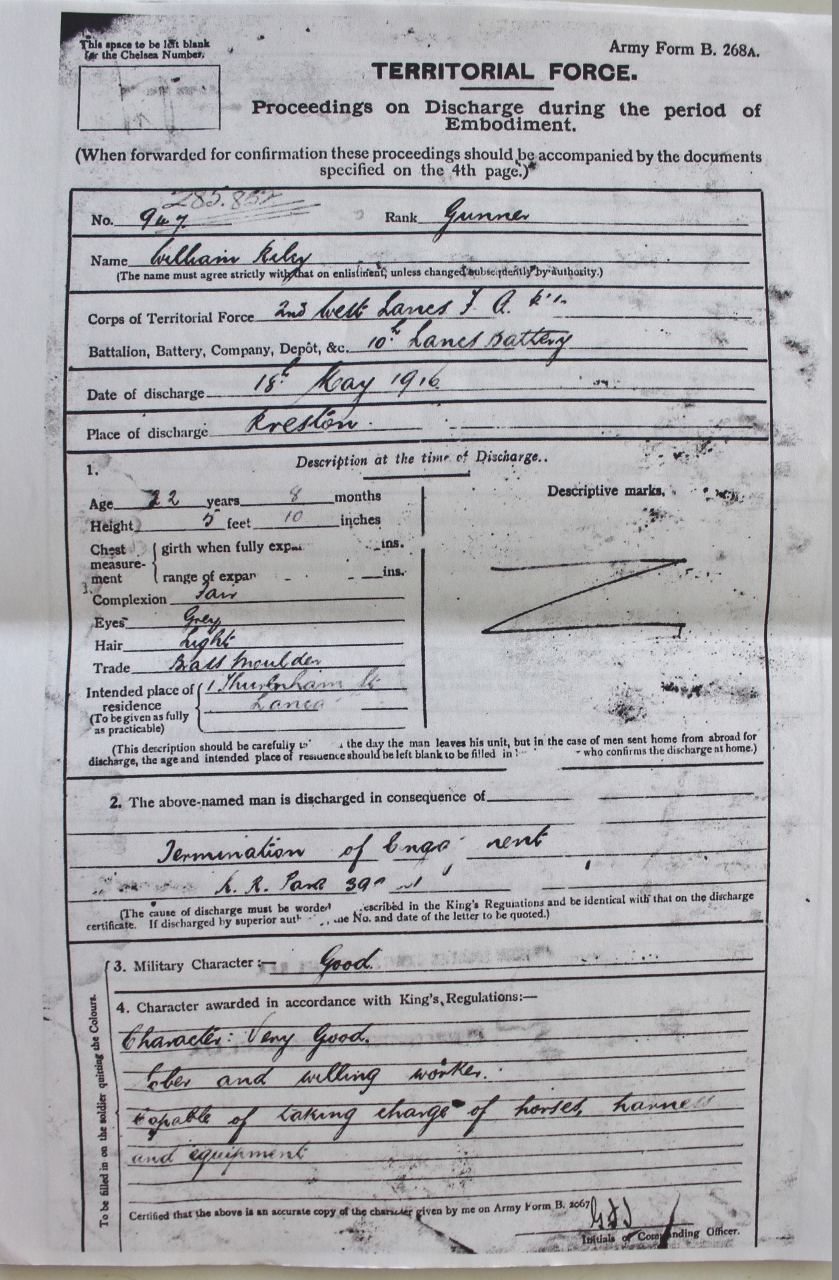 This space to be left blank
for the Chelsea Number.
Army Form B. 268A.
TERRITORIAL FORCE.
Proceedings on Discharge during the period of
Embodiment.
(When forwarded for confirmation these proceedings should be accompanied by the documents
specified on the 4th page.)
No. 947 Rank Gunner
Name William
(The name must agree strictly with that on enlistment, unless changed subsequently by authority.)
Corps of Territorial Force 2nd West Lancs F. A.
Battalion, Battery, Company, Depôt, &c. 10th Lancs Battery
Date of discharge 18th May 1916
Place of discharge Preston
1. Description at the time of Discharge.
Age 22 years 8 months
Descriptive marks.
Height 5 feet 10 inches
Chest measure-ment { girth when fully ins.
range of ins.
Complexion Fair
Eyes Grey
Hair Light
Trade Brass Moulder
Intended place of 1
residence
(To be given as fully
as practicable)
(This description should be carefully the day the man leaves his unit, but in the case of men sent home from abroad for
discharge, the age and intended place of residence should be left blank to be filled in who confirms the discharge at home.)
2. The above-named man is discharged in consequence of
Termination of
K. R. Para
(The cause of discharge must be worded in the King's Regulations and be identical with that on the discharge
certificate. If discharged by superior the No. and date of the letter to be quoted.)
To be filled in on the soldier quitting the Colours.
3. Military Character:— Good.
4. Character awarded in accordance with King's Regulations:—
Character: Very Good.
Sober and willing worker.
Capable of taking charge of horses, harness
and equipment
Certified that the above is an accurate copy of the character given by me on Army Form B. 2067
Initials of Commanding Officer.